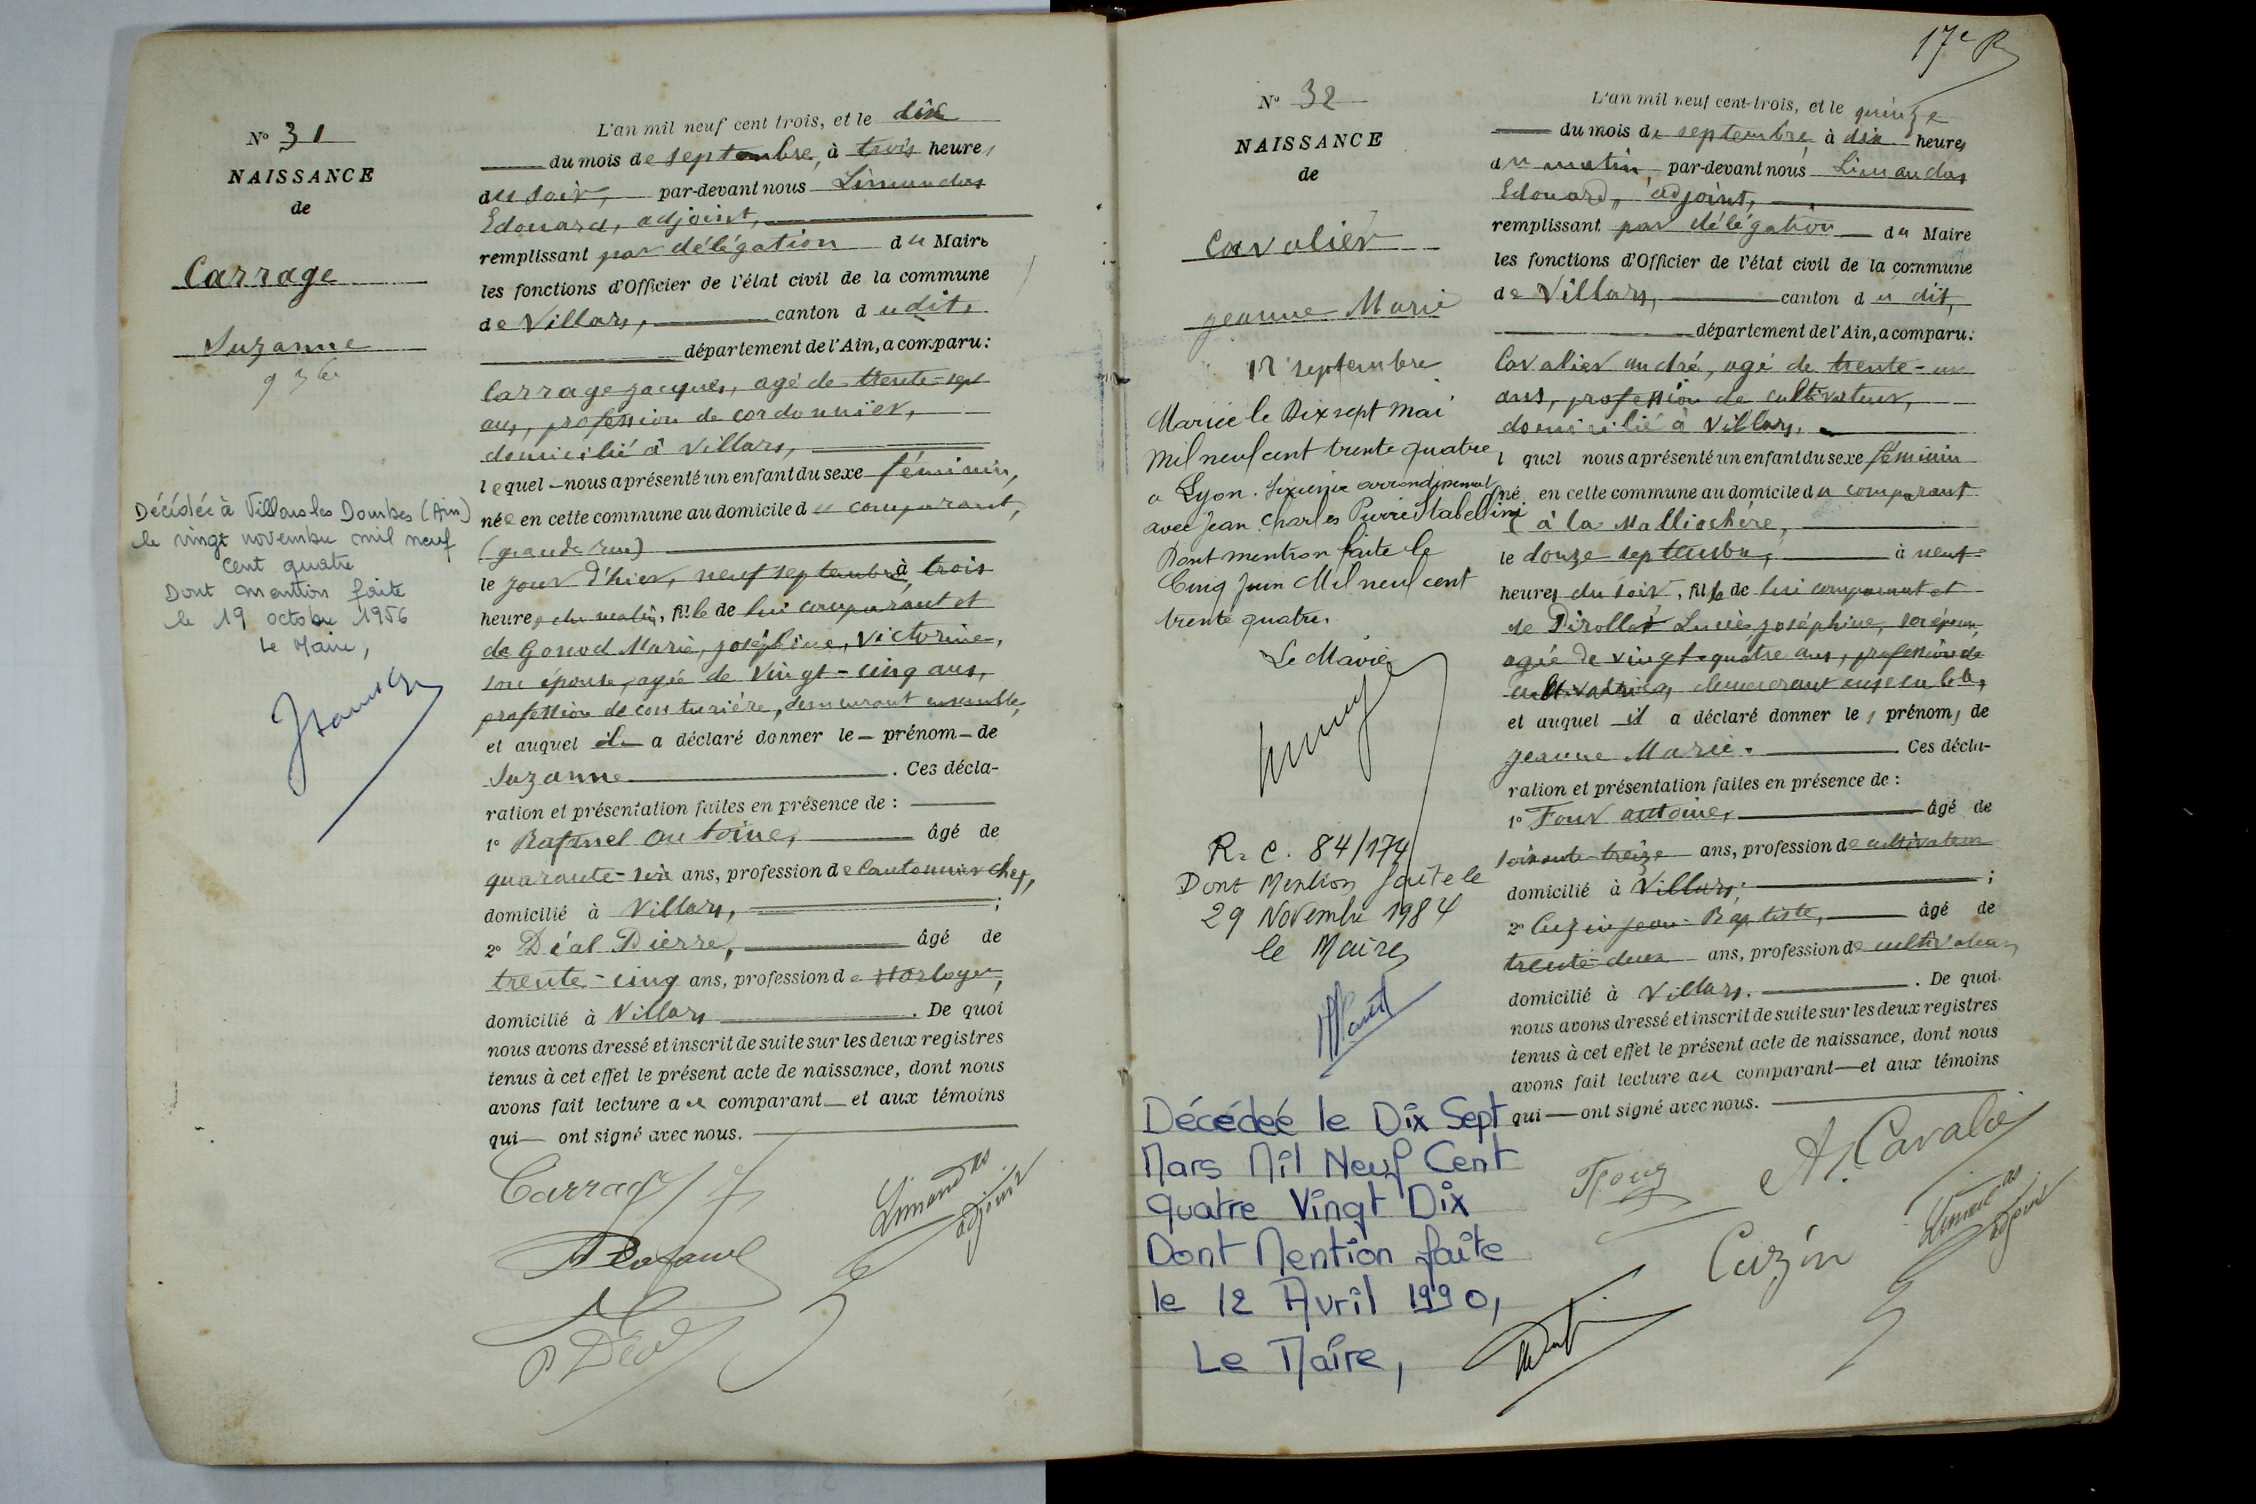 N° 31
NAISSANCE
de
Carrage
Suzanne
9 7bre
Décédée à Villars les Dombes (Ain)
le vingt novembre mil neuf
cent quatre
Dont mention faite
le 19 octobre 1956
Le Maire,
L'an mil neuf cent trois, et le dix
du mois de septembre, à trois heures
du soir, par-devant nous Limandas
Edouard, adjoint,
remplissant par délégation du Maire
les fonctions d'Officier de l'état civil de la commune
de Villars, canton dudit,
département de l'Ain, a comparu:
Carrage Jacques, agé de trente-sept
ans, profession de cordonnier,
domicilié à Villars,
lequel nous a présenté un enfant du sexe féminin,
née en cette commune au domicile du comparant,
(grande rue)
le jour d'hier, neuf septembre à trois
heures du matin, fille de lui comparant et
de Gonod Marie, joséphine, Victorine,
son épouse, agée de vingt-cinq ans,
profession de couturière, demeurant ensemble,
et auquel il a déclaré donner le prénom de
Suzanne. Ces décla-
ration et présentation faites en présence de :
1° antoine, âgé de
quarante-six ans, profession de Cantonnier chef,
domicilié à Villars, ;
2° Déal Pierre, âgé de
trente-cinq ans, profession de Horloger,
domicilié à Villars. De quoi
nous avons dressé et inscrit de suite sur les deux registres
tenus à cet effet le présent acte de naissance, dont nous
avons fait lecture au comparant et aux témoins
qui ont signé avec nous.
Carrage
Limandas
adjoint
P Déal
17e R
N° 32
NAISSANCE
de
Cavalier
jeanne Marie
12 septembre
Mariée le Dix sept mai
mil neuf cent trente quatre
a Lyon. Sixième arrondissement
avec Jean Charles Pierre Stabellini
Dont mention faite le
Cinq Juin Mil neuf cent
trente quatre.
Le Maire
R. C. 84/174
Dont Mention faite le
29 Novembre 1984
le Maire
Décédeé le Dix Sept
Mars Mil Neuf Cent
Quatre Vingt Dix
Dont Mention faîte
le 12 Avril 1990,
Le Maîre,
L'an mil neuf cent-trois, et le quinze
du mois de septembre, à dix heures
du matin, par-devant nous Limandas
Edouard, adjoint,
remplissant par délégation du Maire
les fonctions d'Officier de l'état civil de la commune
de Villars, canton du dit,
département de l'Ain, a comparu:
Cavalier andré, agé de trente-un
ans, profession de cultivateur,
domicilié à Villars.
lequel nous a présenté un enfant du sexe féminin
né en cette commune au domicile du comparant
à la Malliochère,
le douze septembre, à neuf
heures du soir, fille de lui comparant et
de Pirollet Lucie, joséphine, son épouse,
agée de vingt-quatre ans, profession de
cultivatrice, demeurant ensemble,
et auquel il a déclaré donner les prénoms de
jeanne Marie. Ces décla-
ration et présentation faites en présence de :
1° Four antoine, âgé de
soixante-treize ans, profession de cultivateur
domicilié à Villars, ;
2° Cuzin jean-Baptiste, âgé de
trente-deux ans, profession de cultivateur,
domicilié à Villars. De quoi
nous avons dressé et inscrit de suite sur les deux registres
tenus à cet effet le présent acte de naissance, dont nous
avons fait lecture au comparant et aux témoins
qui ont signé avec nous.
A. Cavalié
Cuzin
Limandas
adjoint